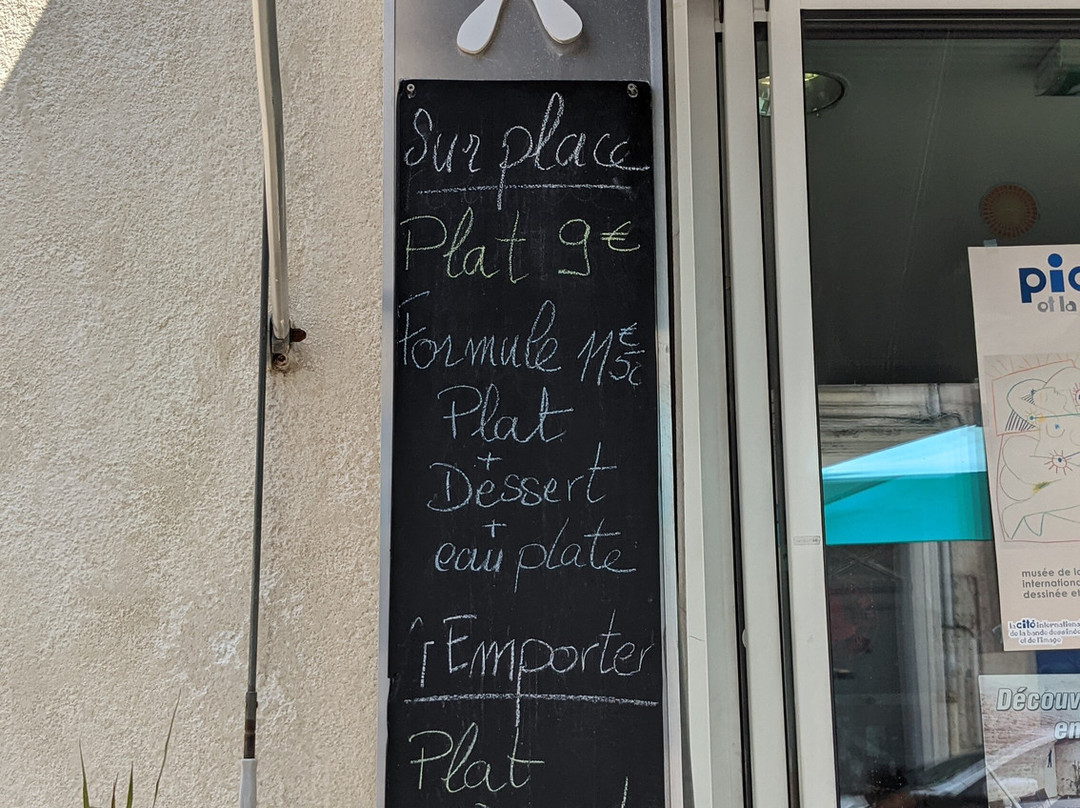 Sur place
Plat 9€
Formule 11€50
Plat
+
Dessert
+
eau plate
Emporter
Plat
pic
et la
musée de la
internationa
dessinée et
la cité internationa
de la bande dessinée
et de l'image
Découv
en